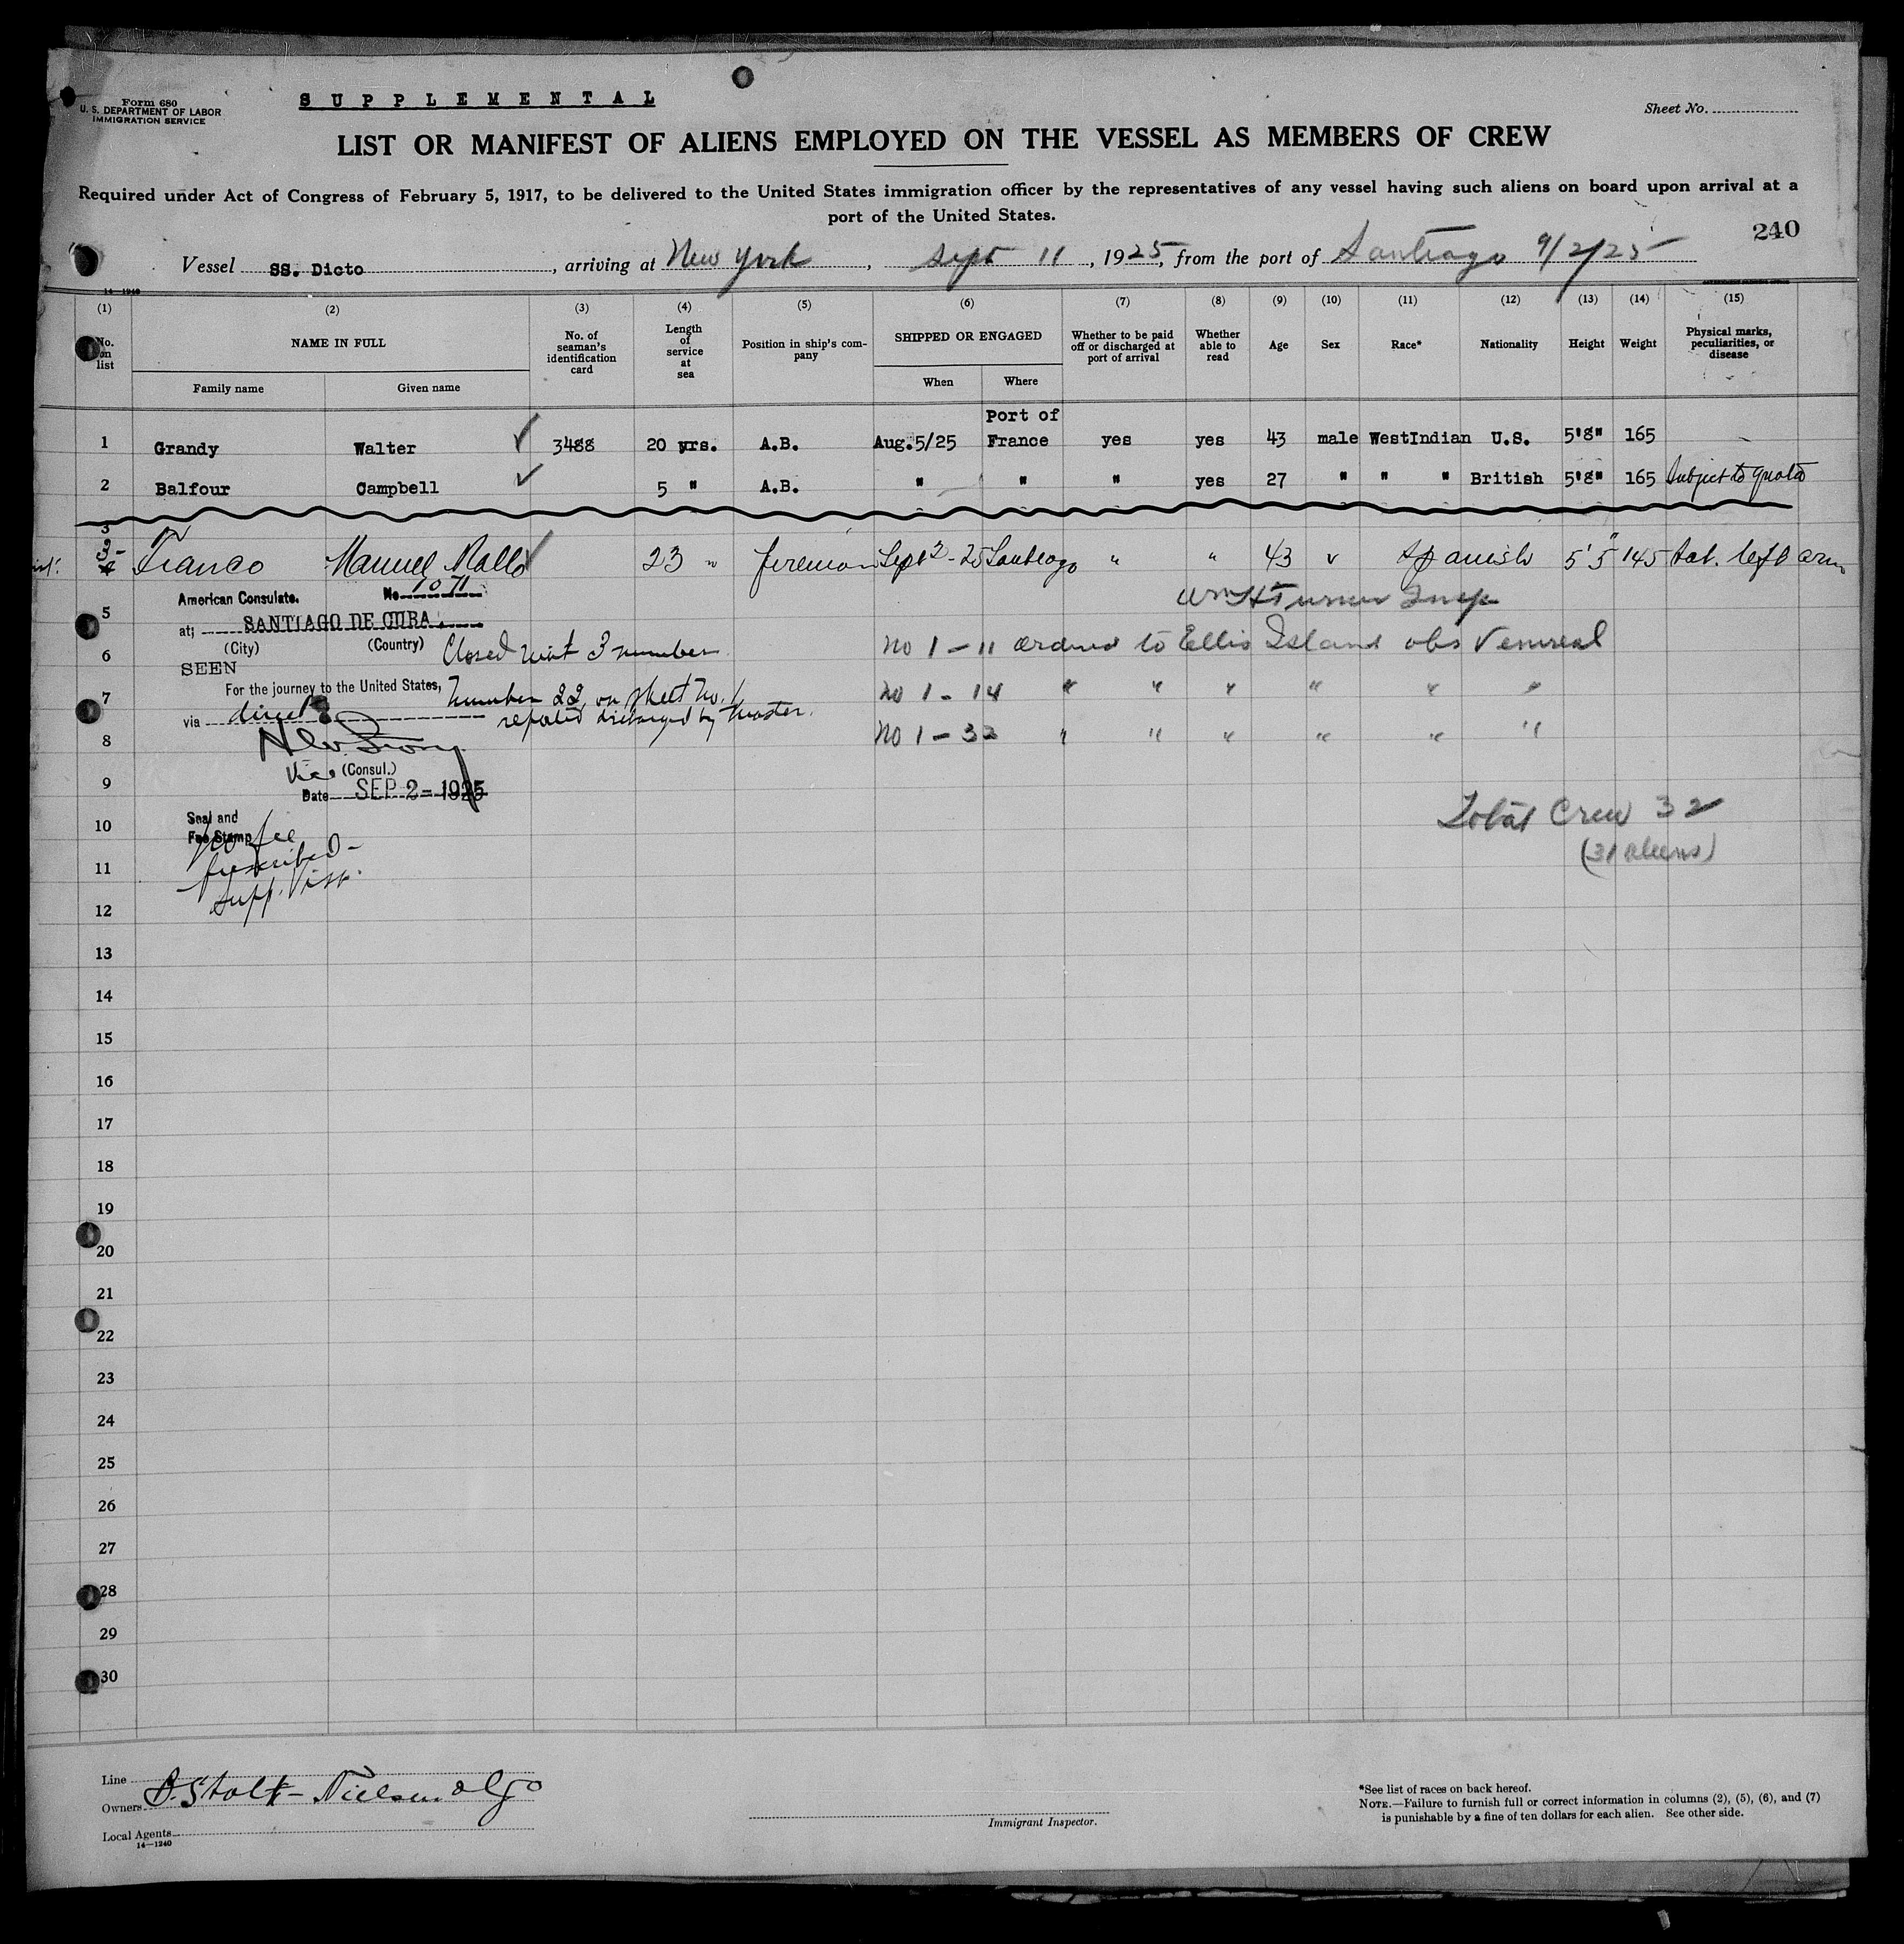 Form 680
U. S. DEPARTMENT OF LABOR
IMMIGRATION SERVICE
SUPPLEMENTAL
Sheet No.
LIST OR MANIFEST OF ALIENS EMPLOYED ON THE VESSEL AS MEMBERS OF CREW
Required under Act of Congress of February 5, 1917, to be delivered to the United States immigration officer by the representatives of any vessel having such aliens on board upon arrival at a
port of the United States.
240
Vessel SS. Dicto, arriving at New York, Sept 11, 1925, from the port of Santiago 9/2/25
14—1240
(1) (2) (3) (4) (5) (6) (7) (8) (9) (10) (11) (12) (13) (14) (15)
No. on list
NAME IN FULL
Family name
Given name
No. of seaman's identification card
Length of service at sea
Position in ship's company
SHIPPED OR ENGAGED
When
Where
Whether to be paid off or discharged at port of arrival
Whether able to read
Age
Sex
Race*
Nationality
Height
Weight
Physical marks, peculiarities, or disease
1 Grandy Walter 3488 20 yrs. A.B. Aug.5/25 Port of France yes yes 43 male WestIndian U.S. 5'8" 165 -
2 Balfour Campbell 5 " A.B. " " " yes 27 " " " British 5'8" 165 Subject to quota
3
3 Franco Manuel Rallo 23 " fireman Sept 2-25 Santiago " " 43 v Spanish 5'5" 145 tat. left arm
American Consulate. No. 1071
Wm H Turner Insp
5
at; SANTIAGO DE CUBA.
(City) (Country)
6
Closed with 3 number
No 1 - 11 ordered to Ellis Island obs Venereal
SEEN
For the journey to the United States,
7
Number 22, on sheet No. 1
No 1 - 14 " " " " " "
via direct
reported discharged by Master.
8
No 1 - 32 " " " " " "
Vice (Consul.)
9
Date SEP 2 - 1925
10
Seal and
Fee Stamp
No fee
prescribed -
Supp. Visa.
Total Crew 32
(31 aliens)
11
12
13
14
15
16
17
18
19
20
21
22
23
24
25
26
27
28
29
30
Line
Owners B. Stolt-Nielsen & Co
Local Agents
14—1240
Immigrant Inspector.
*See list of races on back hereof.
NOTE.—Failure to furnish full or correct information in columns (2), (5), (6), and (7)
is punishable by a fine of ten dollars for each alien. See other side.